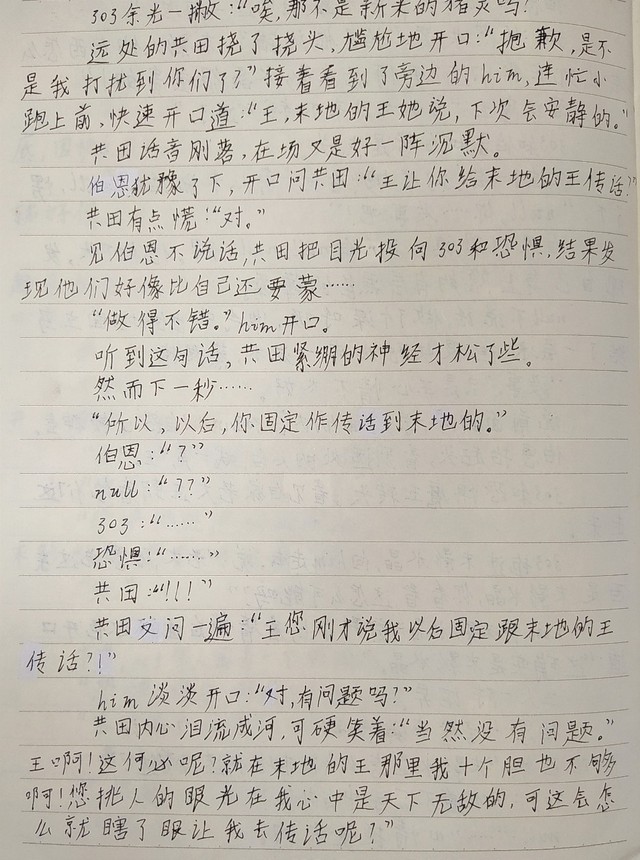 303余光一撇:“唉,那不是新来的猪灵吗?
远处的共田挠了挠头,尴尬地开口:“抱歉,是不
是我打扰到你们了?”接着看到了旁边的him,连忙小
跑上前,快速开口道:“王,末地的王她说,下次会安静的。”
共田话音刚落,在场又是好一阵沉默。
伯恩犹豫了下,开口问共田:“王让你给末地的王传话?
共田有点慌:“对。”
见伯恩不说话,共田把目光投向303和恐惧,结果发
现他们好像比自己还要蒙……
“做得不错。”him开口。
听到这句话,共田紧绷的神经才松了些。
然而下一秒……
“所以,以后,你固定作传话到末地的。”
伯恩:“?”
null:“??”
303:“……”
恐惧:“……”
共田:“!!!”
共田又问一遍:“王您刚才说我以后固定跟末地的王
传话?!”
him淡淡开口:“对,有问题吗?”
共田内心泪流成河,可硬笑着:“当然没有问题。”
王啊!这何必呢?就在末地的王那里我十个胆也不够
啊!您挑人的眼光在我心中是天下无敌的,可这会怎
么就瞎了眼让我去传话呢?”